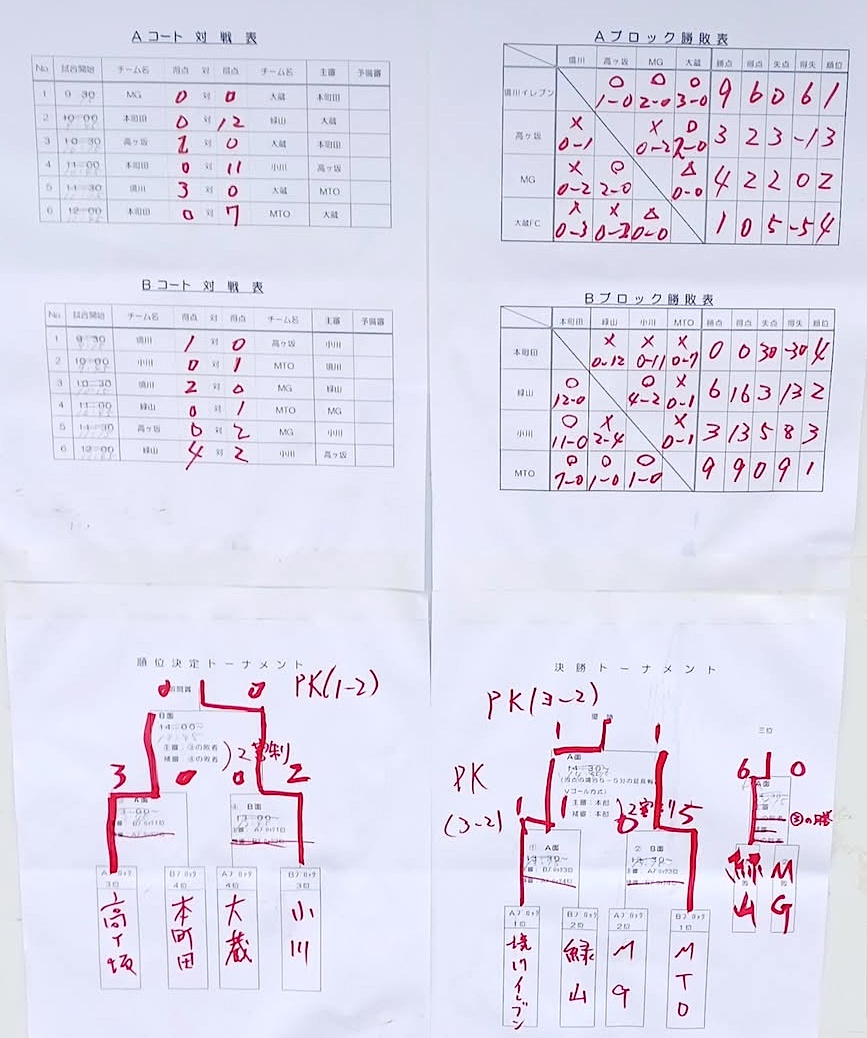 Aコート 対 戦 表
No. 試合開始 チーム名 得点 対 得点 チーム名 主審 予備審
1 9:30 MG 0 対 0 大蔵 本町田
2 10:00 本町田 0 対 12 緑山 大蔵
3 10:30 高ヶ坂 2 対 0 大蔵 本町田
4 11:00 本町田 0 対 11 小川 高ヶ坂
5 11:30 境川 3 対 0 大蔵 MTO
6 12:00 本町田 0 対 7 MTO 大蔵
Bコート 対 戦 表
No. 試合開始 チーム名 得点 対 得点 チーム名 主審 予備審
1 9:30 境川 1 対 0 高ヶ坂 小川
2 10:00 小川 0 対 1 MTO 境川
3 10:30 境川 2 対 0 MG 緑山
4 11:00 緑山 0 対 1 MTO MG
5 11:30 高ヶ坂 0 対 2 MG 小川
6 12:00 緑山 4 対 2 小川 高ヶ坂
Aブロック勝敗表
境川 高ヶ坂 MG 大蔵 勝点 得点 失点 得失 順位
境川イレブン ○ 1-0 ○ 2-0 ○ 3-0 9 6 0 6 1
高ヶ坂 × 0-1 × 0-2 ○ 2-0 3 2 3 -1 3
MG × 0-2 ○ 2-0 △ 0-0 4 2 2 0 2
大蔵FC × 0-3 × 0-2 △ 0-0 1 0 5 -5 4
Bブロック勝敗表
本町田 緑山 小川 MTO 勝点 得点 失点 得失 順位
本町田 × 0-12 × 0-11 × 0-7 0 0 30 -30 4
緑山 ○ 12-0 ○ 4-2 × 0-1 6 16 3 13 2
小川 ○ 11-0 × 2-4 × 0-1 3 13 5 8 3
MTO ○ 7-0 ○ 1-0 ○ 1-0 9 9 0 9 1
順位決定トーナメント
0 0 PK(1-2)
B面
14:00~
主審:③の敗者
補審:④の敗者
3 0 0 2
A面
④ B面
13:00~
Aブロック 3位 Bブロック 4位 Aブロック 4位 Bブロック 3位
高ヶ坂 本町田 大蔵 小川
決勝トーナメント
PK(3-2)
1 優勝 1
三位
A面
14:30~
Vゴール方式)
主審:本部
補審:本部
PK
(3-2)
1 1 0 5
6 0
A面
① A面
② B面
Aブロック 1位 Bブロック 2位 Aブロック 2位 Bブロック 1位
境川イレブン 緑山 MG MTO
緑山 MG